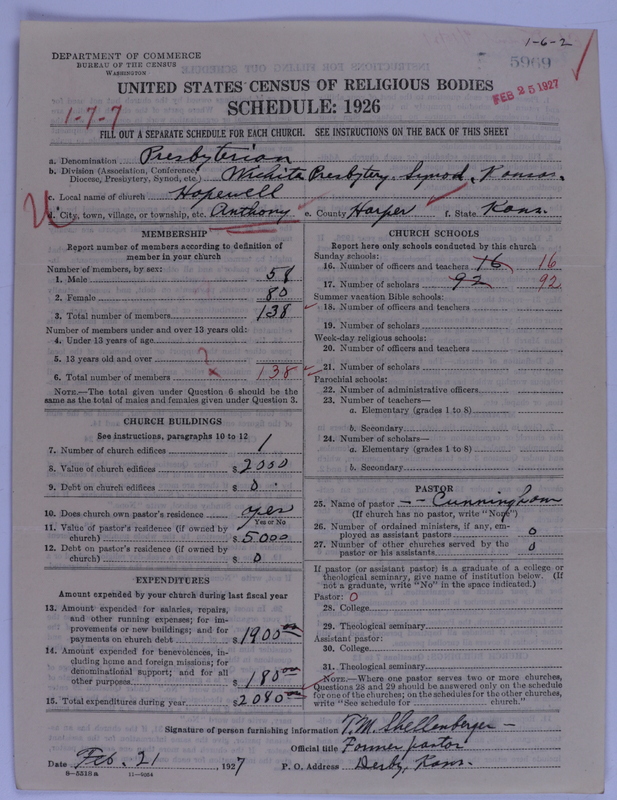 1-6-2
DEPARTMENT OF COMMERCE
BUREAU OF THE CENSUS
WASHINGTON
5969
FEB 25 1927
UNITED STATES CENSUS OF RELIGIOUS BODIES
SCHEDULE: 1926
1-7-7
FILL OUT A SEPARATE SCHEDULE FOR EACH CHURCH. SEE INSTRUCTIONS ON THE BACK OF THIS SHEET
a. Denomination Presbyterian
b. Division (Association, Conference, Diocese, Presbytery, Synod, etc.) Wichita Presbytery, Synod, Kansas.
c. Local name of church Hopewell
d. City, town, village, or township, etc. Anthony e. County Harper f. State Kans.
MEMBERSHIP
Report number of members according to definition of
member in your church
Number of members, by sex:
1. Male 58
2. Female 80
3. Total number of members 138
Number of members under and over 13 years old:
4. Under 13 years of age
5. 13 years old and over
?
6. Total number of members x 138
NOTE.—The total given under Question 6 should be the
same as the total of males and females given under Question 3.
CHURCH BUILDINGS
See instructions, paragraphs 10 to 12
7. Number of church edifices 1
8. Value of church edifices $ 2000
9. Debt on church edifices $ 0
10. Does church own pastor's residence yes
Yes or No
11. Value of pastor's residence (if owned by
church) $ 5000
12. Debt on pastor's residence (if owned by
church) $ 0
EXPENDITURES
Amount expended by your church during last fiscal year
13. Amount expended for salaries, repairs,
and other running expenses; for im-
provements or new buildings; and for
payments on church debt $ 1900.00
14. Amount expended for benevolences, in-
cluding home and foreign missions; for
denominational support; and for all
other purposes $ 180.00
15. Total expenditures during year $ 2080.00
CHURCH SCHOOLS
Report here only schools conducted by this church
Sunday schools:
16. Number of officers and teachers 16 16
17. Number of scholars 92 92
Summer vacation Bible schools:
18. Number of officers and teachers
19. Number of scholars
Week-day religious schools:
20. Number of officers and teachers
21. Number of scholars
Parochial schools:
22. Number of administrative officers
23. Number of teachers—
a. Elementary (grades 1 to 8)
b. Secondary
24. Number of scholars—
a. Elementary (grades 1 to 8)
b. Secondary
PASTOR
25. Name of pastor - - Cunningham
(If church has no pastor, write "None")
26. Number of ordained ministers, if any, em-
ployed as assistant pastors 0
27. Number of other churches served by the
pastor or his assistants 0
If pastor (or assistant pastor) is a graduate of a college or
theological seminary, give name of institution below. (If
not a graduate, write "No" in the space indicated.)
Pastor: 0
28. College
29. Theological seminary
Assistant pastor:
30. College
31. Theological seminary
NOTE.—Where one pastor serves two or more churches,
Questions 28 and 29 should be answered only on the schedule
for one of the churches; on the schedules for the other churches,
write "See schedule for church."
Signature of person furnishing information T. M. Shellenberger
Official title Former pastor
Date Feb. 21 1927 P. O. Address Derby, Kans.
8-5318 a 11-9064